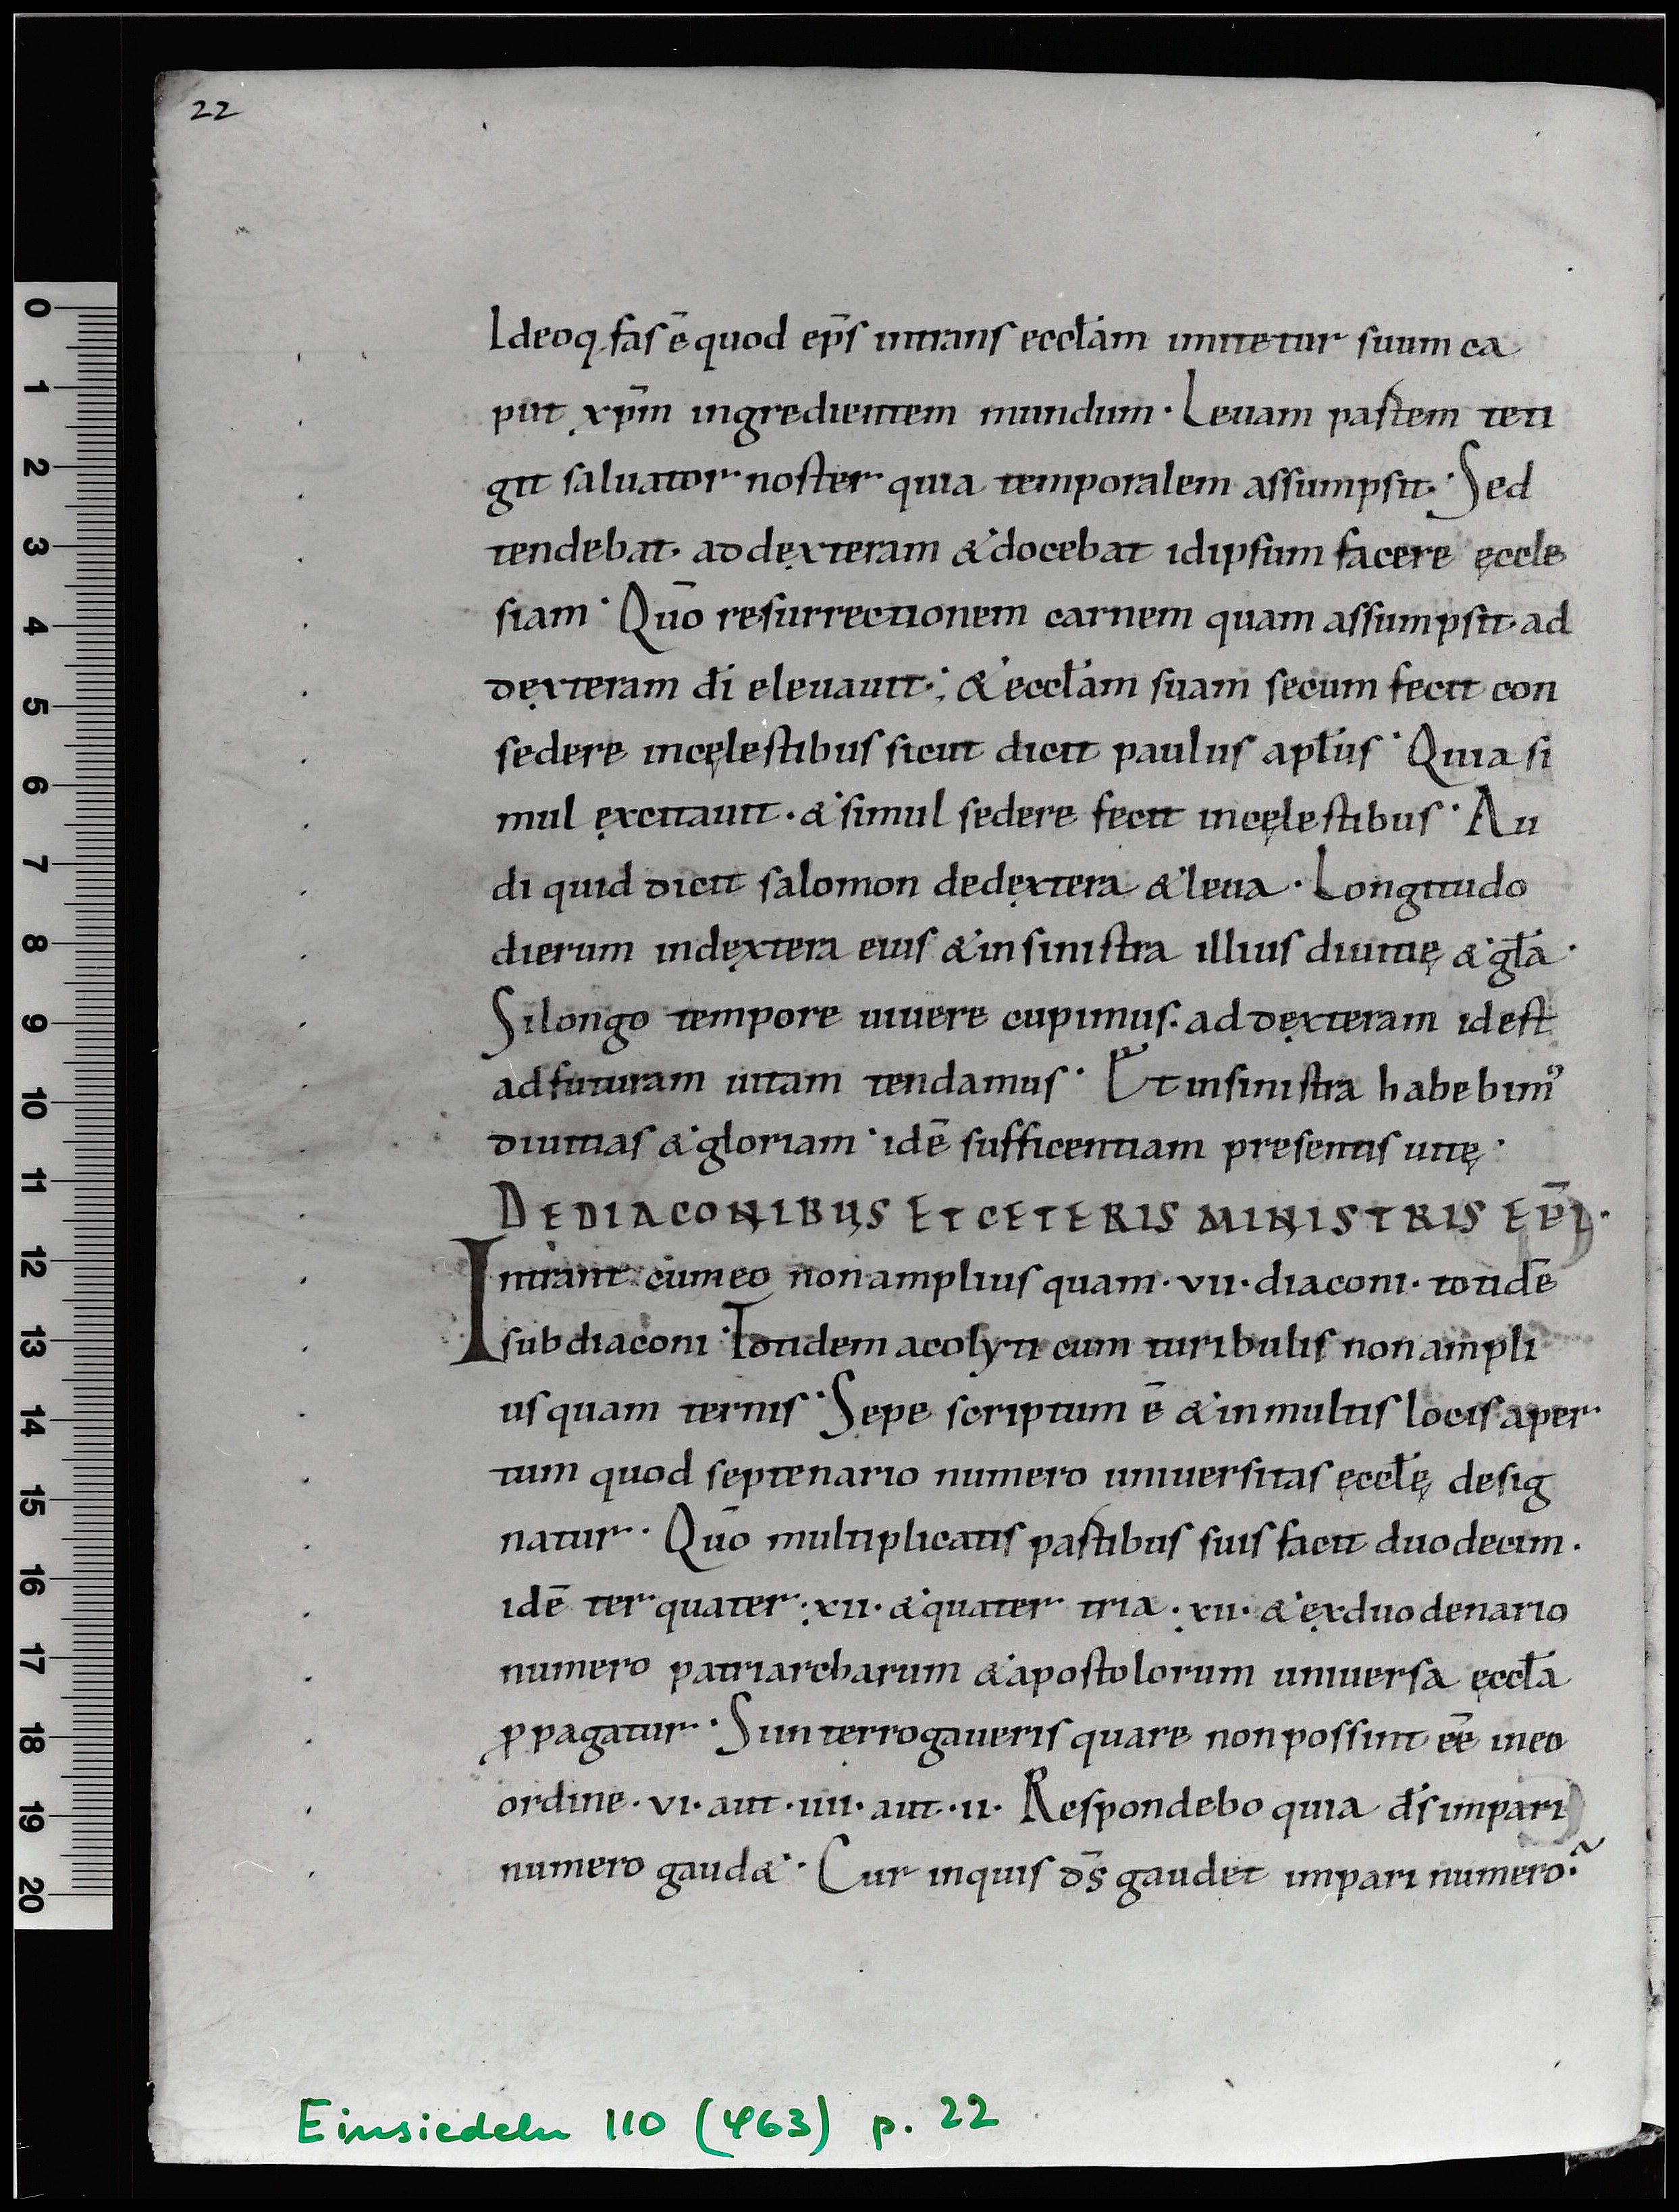 22
Ideoq; fas ē quod ep̄s intrans eccl̄am imitetur suum ca
put xp̄m ingredientem mundum · Leuam partem teti
git saluator noster quia temporalem assumpsit · Sed
tendebat · ad dęxteram & docebat id ipsum facere ęccle
siam · Quō resurrectionem carnem quam assumpsit · ad
dęxteram dī eleuauit ·; & eccl̄am suam secum fecit con
sedere in cęlestibus sicut dicit paulus apl̄us · Quia si
mul ęxcitauit · & simul sedere fecit in cęlestibus · Au
di quid dicit salomon de dęxtera & leua · Longitudo
dierum in dęxtera eius & in sinistra illius diuitię & gl̄a ·
Si longo tempore uiuere cupimus · ad dęxteram id est
ad futuram uitam tendamus · Et in sinistra habebim᾽
diuitias & gloriam · id ē sufficentiam presentis uitę ·
DE DIACONIBUS ET CETERIS MINISTRIS EP̄I ·
Intrant cum eo non amplius quam · vii · diaconi · totidē
subdiaconi · Totidem acolyti cum turibulis non ampli
us quam ternis · Sepe scriptum ē & in multis locis aper
tum quod septenario numero uniuersitas ęccl̄ę desig
natur · Quō multiplicatis partibus suis facit duodecim ·
id ē ter quater · xii · & quater tria · xii · & ęx duodenario
numero patriarcharum & apostolorum uniuersa ęccl̄a
ꝓpagatur · Si interrogaueris quare non possint eē in eo
ordine · vi · aut · iiii · aut · ii · Respondebo quia d̄s impari
numero gaud& · Cur inquis d̄s gaudet impari numero ·~
0
1
2
3
4
5
6
7
8
9
10
11
12
13
14
15
16
17
18
19
20
Einsiedeln 110 (463) p. 22